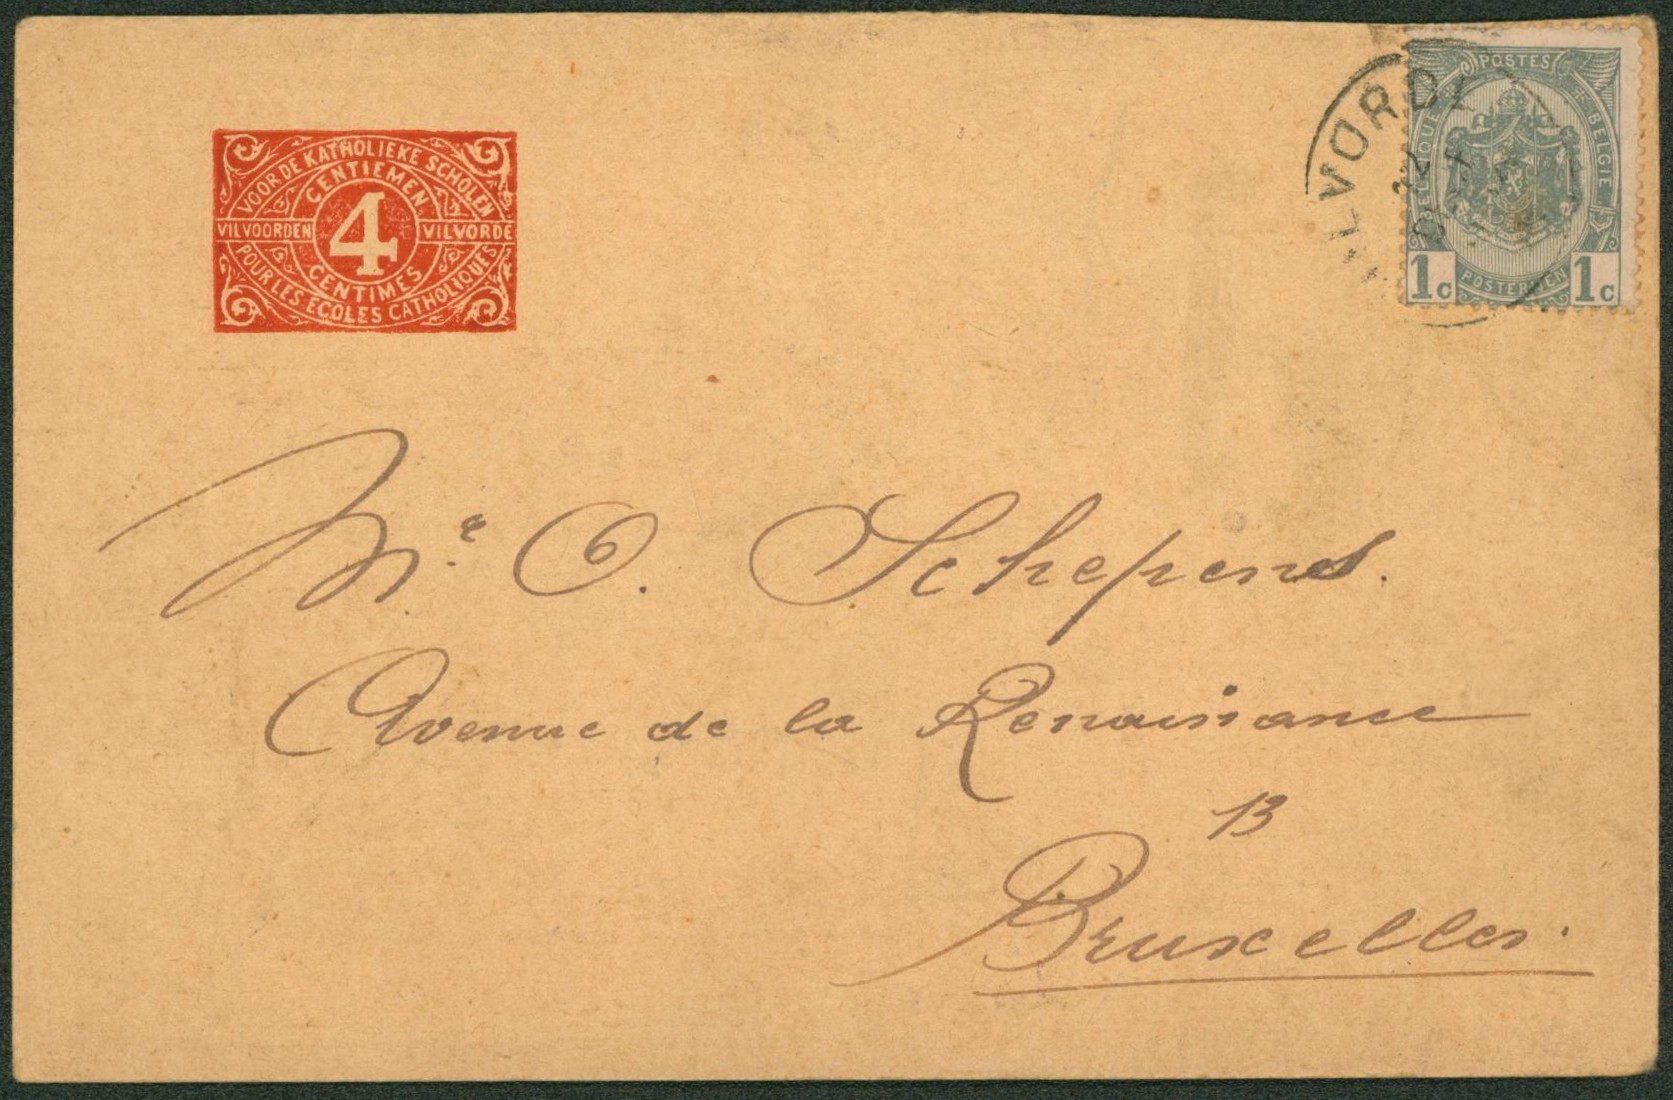 VOOR DE KATHOLIEKE SCHOLEN
CENTIEMEN
VILVOORDEN 4 VILVORDE
CENTIMES
POUR LES ECOLES CATHOLIQUES
POSTES
BELGIQUE BELGIË
POSTERIJEN
1c 1c
VILVORDE
Mr. O. Schepens.
Avenue de la Renaissance
13
Bruxelles.